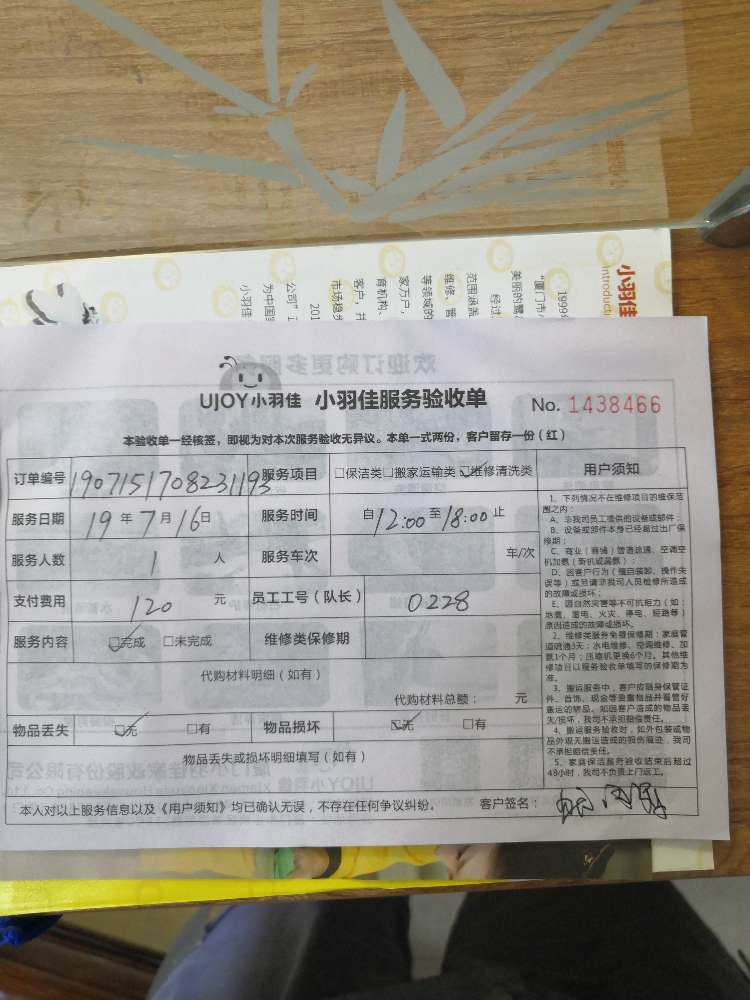 小羽佳
Introducti
1999年
美丽的鹭
经过
范围涵盖
维修、管
等领域的
家万户，
育机构、
客户，并
市场稳步
201
公司”
为中国
小羽佳
欢迎订购更多服务
UJOY小羽佳 小羽佳服务验收单 No. 1438466
本验收单一经核签，即视为对本次服务验收无异议。本单一式两份，客户留存一份（红）
订单编号 1907151708231193 服务项目 □保洁类□搬家运输类☑维修清洗类 用户须知
服务日期 19年7月16日 服务时间 自12:00至18:00止
服务人数 1 人 服务车次 车/次
支付费用 120 元 员工工号（队长） 0228
服务内容 ☑完成 □未完成 维修类保修期
代购材料明细（如有）
代购材料总额： 元
物品丢失 ☑无 □有 物品损坏 ☑无 □有
物品丢失或损坏明细填写（如有）
本人对以上服务信息以及《用户须知》均已确认无误，不存在任何争议纠纷。 客户签名：
1、下列情况不在维修项目的维保范
围之内：
A、非我司员工提供的设备或部件；
B、设备或部件本身已经超过出厂保
修期；
C、商业（商铺）管道疏通、空调空
机加氨（新机或漏氨）；
D、因客户行为（擅自装卸、操作失
误等）或邀请非我司人员检修所造成
的故障或损坏；
E、因自然灾害等不可抗拒力（如：
地震、雷电、火灾、停电、短路等）
原因造成的故障或损坏。
2、维修类服务免费保修期：家庭管
道疏通3天；水电维修、空调维修、加
氨1个月；压缩机更换6个月。其他维
修项目以服务验收单填写的保修期为
准。
3、搬运服务中，客户应随身保管证
件、首饰、现金等贵重物品并看管好
搬运的物品。如因客户造成的物品丢
失/损坏，我司不承担赔偿责任。
4、搬运服务验收时，如外包装或物
品外观无搬运造成的损伤痕迹，我司
不承担赔偿责任。
5、家庭保洁服务验收结束后超过
48小时，我司不负责上门返工。